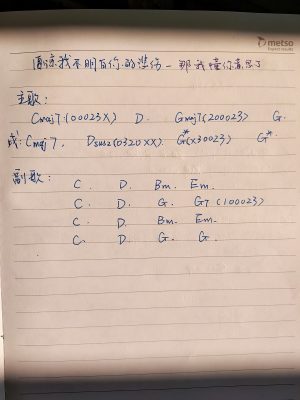 metso
Expect results
原谅我不明白你的悲伤 - 那我懂你意思了
主歌:
Cmaj7(00023X) D. Gmaj7(200023) G.
或: Cmaj7. Dsus2(0320XX). G*(X30023) G*.
副歌:
C. D. Bm. Em.
C. D. G. G7 (100023)
C. D. Bm. Em.
C. D. G. G.